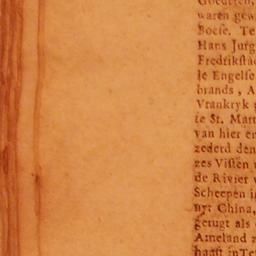 Goederen,
waren gew
Boese. Te
Hans Jurg
Fredrikstad
le Engelse
brands, A
Vrankryk
te St. Mart
van hier en
zederd den
zes Vissen
de Rivier
Scheepen i
nyt China,
gerugt als
Ameland z
haast in Te